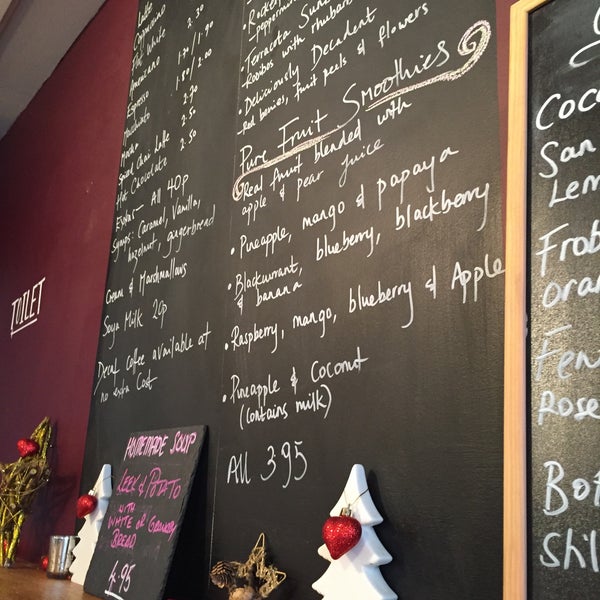 Latte
Cappuccino
Flat White 2.30
Americano 1.70/1.90
Espresso 1.50/2.00
Macchiato
Mocha 2.70
Spiced Chai Latte 2.50
Hot Chocolate 2.50
Extras - All 40p
Syrups: Caramel, Vanilla,
hazelnut, gingerbread
Cream & Marshmallows
Soya Milk 20p
Decaf coffee available at
no extra cost
peppermint
Terracotta
Rooibos with rhubarb
• Deliciously Decadent
- Red berries, fruit peels & flowers
Pure Fruit Smoothies
Real fruit blended with
apple & pear juice
• Pineapple, mango & papaya
• Blackcurrant, blueberry, blackberry
& banana
• Raspberry, mango, blueberry & Apple
• Pineapple & Coconut
(contains milk)
All 3.95
TOILET
HOMEMADE SOUP
LEEK & POTATO
WITH
WHITE OR GRANARY
BREAD
4.95
Coco
San
Lem
Frob
oran
Fen
Rose
Bot
Shil